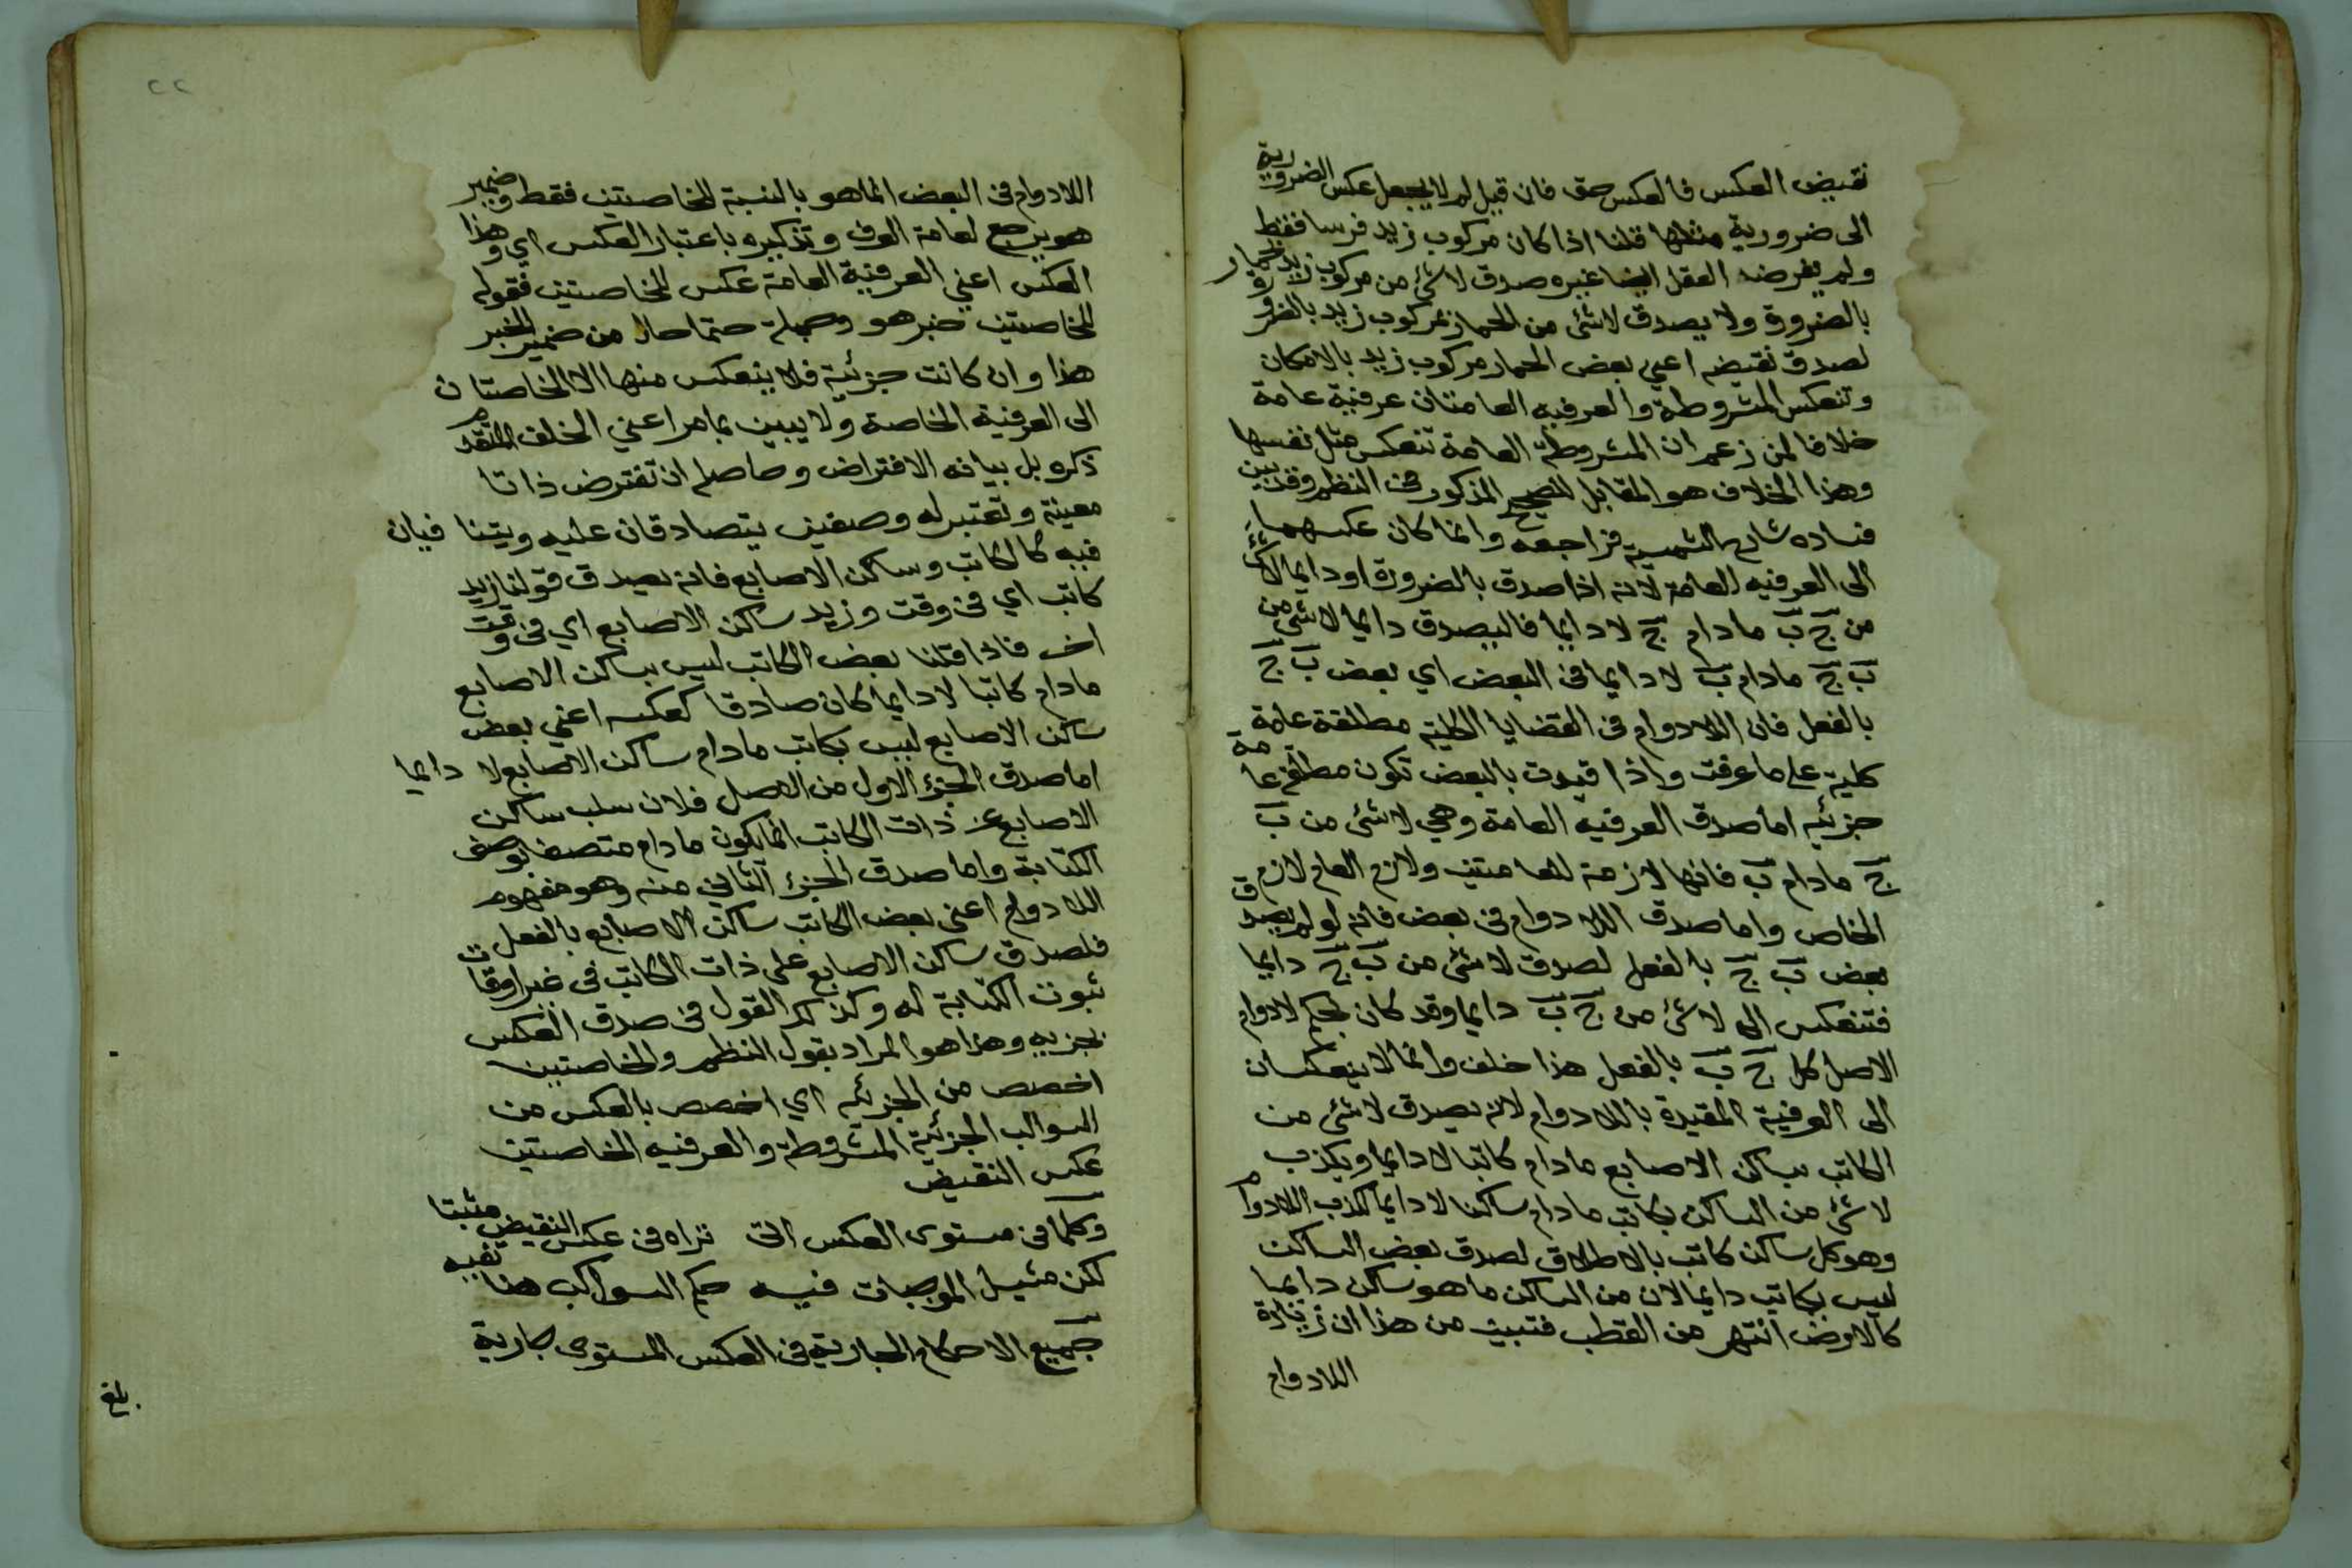 نقيض العكس فالعكس حق فان قيل لم لا يجعل عكس الضرورية
الى ضرورية مثلها قلنا اذا كان مركوب زيد فرسا فقط
ولم يفرضه العقل ايضا غيره صدق لا شئ من مركوب زيد حمار
بالضرورة ولا يصدق لا شئ من الحمار بمركوب زيد بالضرورة
لصدق نقيضه اعني بعض الحمار مركوب زيد بالامكان
وتنعكس المشروطة والعرفيه العامتان عرفية عامة
خلافا لمن زعم ان المشروطة العامة تنعكس مثل نفسها
وهذا الخلاف هو المقابل للصحيح المذكور في النظم وقد بين
فساده شارح الشمسية فراجعه وانما كان عكسهما
الى العرفيه العامة لانه اذا صدق بالضرورة او دايما لا شئ
من ج ب مادام ج لا دايما فاليصدق دايما لا شئ من
ب ج مادام ب لا دايما في البعض اي بعض ب ج
بالفعل فان اللادوام في القضايا الكلية مطلقة عامة
كلية على ما عرفت واذا قيدت بالبعض تكون مطلقة عامة
جزئيه اما صدق العرفيه العامة وهي لا شئ من ب
ج مادام ب فانها لازمة للعامتين ولازم العام لازم
الخاص واما صدق اللادوام في بعض فانه لو لم يصدق
بعض ب ج بالفعل لصدق لا شئ من ب ج دايما
فتنعكس الى لا شئ من ج ب دايما وقد كان بحكم لادوام
الاصل كل ج ب بالفعل هذا خلف وانما لا ينعكسان
الى العرفية المقيدة باللادوام لانه يصدق لا شئ من
الكاتب بساكن الاصابع مادام كاتبا لا دايما ويكذب
لا شئ من الساكن بكاتب مادام ساكنا لا دايما لكذب اللادوام
وهو كل ساكن كاتب بالاطلاق لصدق بعض الساكن
ليس بكاتب دايما لان من الساكن ما هو ساكن دايما
كالارض انتهى من القطب فتبين من هذا ان زيادة
اللادوام
٢٢
اللادوام في البعض انما هو بالنسبة للخاصتين فقط وضمير
هو يرجع لعامة العرف وتذكيره باعتبار العكس اي وهذا
العكس اعني العرفية العامة عكس للخاصتين فقوله
للخاصتين خبر هو وجملة حتما حال من ضمير الخبر
هذا وان كانت جزئية فلا ينعكس منها الا الخاصتان
الى العرفية الخاصة ولا يبين بما مر اعني الخلف المتقدم
ذكره بل بيانه الافتراض وحاصله ان تفترض ذاتا
معينة وتعتبر له وصفين يتصادقان عليه ويتنافيان
فيه كالكاتب وساكن الاصابع فانه يصدق قولنا زيد
كاتب اي في وقت وزيد ساكن الاصابع اي في وقت
اخر فاذا قلنا بعض الكاتب ليس بساكن الاصابع
مادام كاتبا لا دايما كان صادقا كعكسه اعني بعض
ساكن الاصابع ليس بكاتب مادام ساكن الاصابع لا دايما
اما صدق الجزء الاول من الاصل فلان سلب ساكن
الاصابع عن ذات الكاتب انما يكون مادام متصفا بوصف
الكتابة واما صدق الجزء الثاني منه وهو مفهوم
اللادوام اعني بعض الكاتب ساكن الاصابع بالفعل
فلصدق ساكن الاصابع على ذات الكاتب في غير اوقات
ثبوت الكتابة له وكذلك القول في صدق العكس
بجزيه وهذا هو المراد بقول النظم والخاصتين
اخصص من الجزئيه اي اخصص بالعكس من
السوالب الجزئية المشروطة والعرفيه الخاصتين
عكس النقيض
وكلما في مستوى العكس اتى نراه في عكس النقيض مثبتا
لكن مثيل الموجبات فيه حكم السوالب هنا تفيه
جميع الاحكام الجارية في العكس المستوى جارية
بلغ